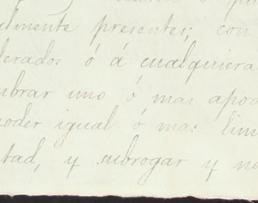 elmente presentes; con
derados ó á cualquiera
mbrar uno ó mas apod
poder igual ó mas lim
tad, y subrogar y